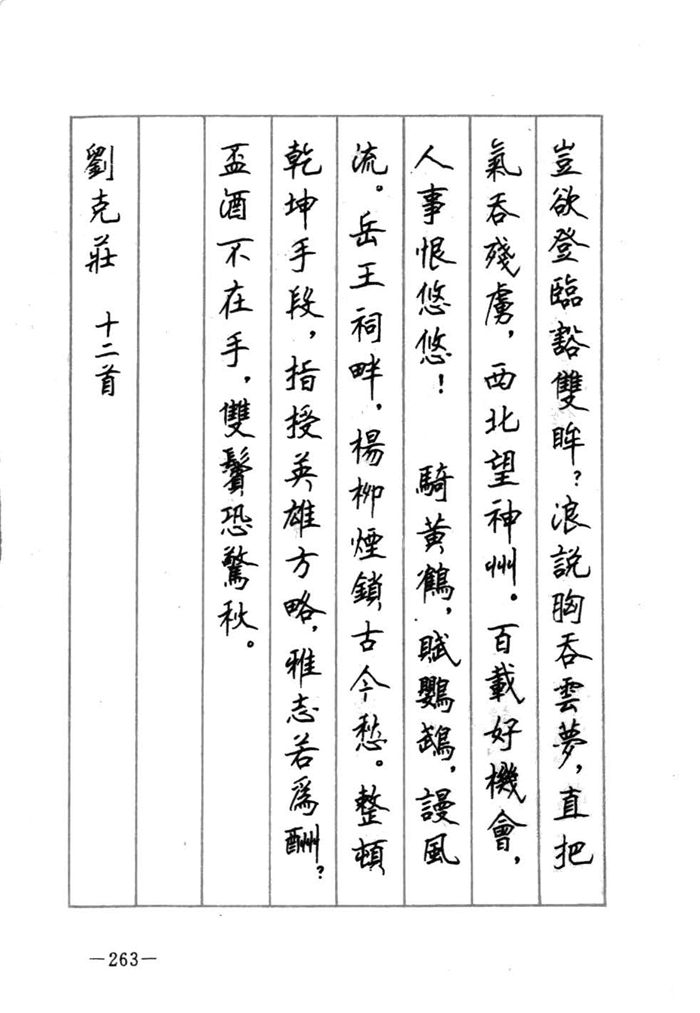 豈欲登臨豁雙眸？浪說胸吞雲夢，直把
氣吞殘虜，西北望神州。百載好機會，
人事恨悠悠！　騎黃鶴，賦鸚鵡，謾風
流。岳王祠畔，楊柳煙鎖古今愁。整頓
乾坤手段，指授英雄方略，雅志若爲酬？
盃酒不在手，雙鬢恐驚秋。
劉克莊　十二首
—263—